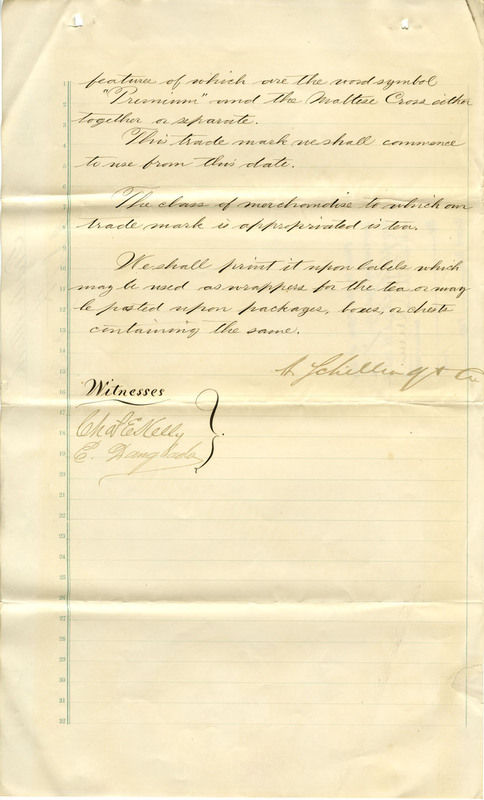 features of which are the word symbol
"Premium" and the Maltese Cross either
together or separate.
This trade mark we shall commence
to use from this date.
The class of merchandise to which our
trade mark is appropriated is tea.
We shall print it upon labels which
may be used as wrappers for the tea or may
be pasted upon packages, boxes, or chests
containing the same.
A Schilling & Co
Witnesses
Chas E Kelly
E. Danglada
1
2
3
4
5
6
7
8
9
10
11
12
13
14
15
16
17
18
19
20
21
22
23
24
25
26
27
28
29
30
31
32